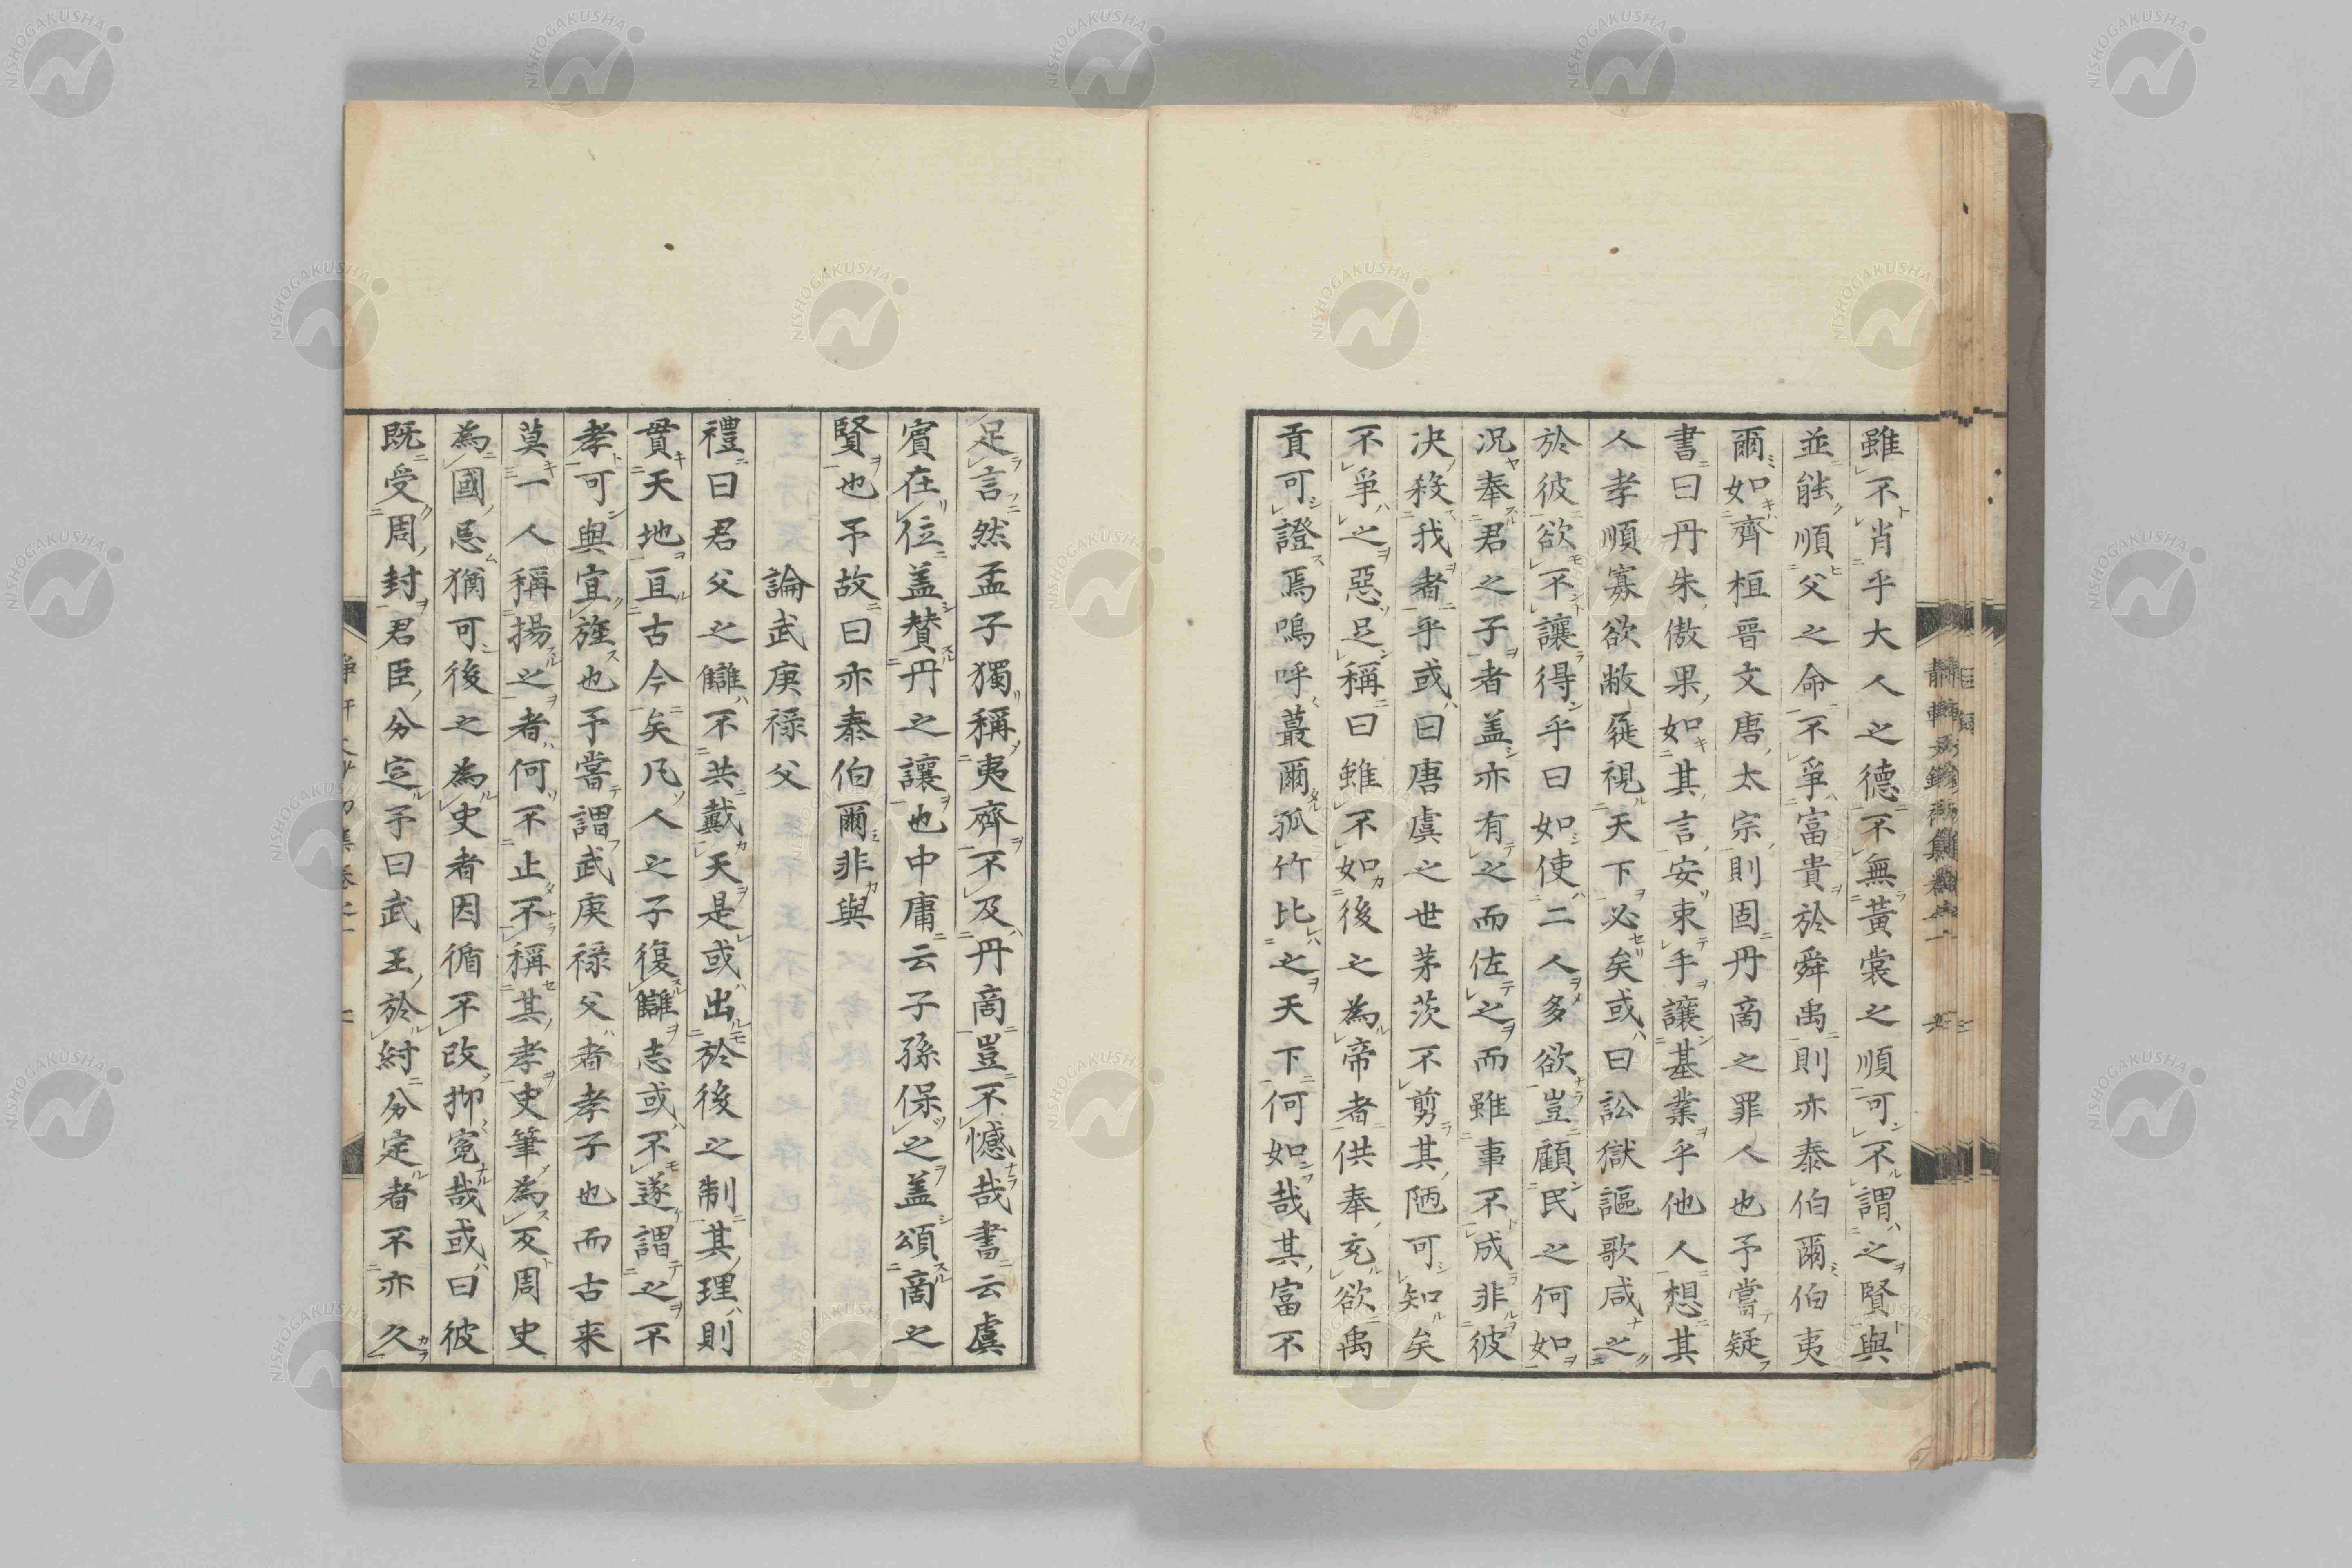 雖不肖乎大人之德不無黃裳之順可不謂之賢與
並能順父之命不爭富貴於舜禹則亦泰伯爾伯夷
爾如齊桓晉文唐太宗則固丹啇之罪人也予嘗疑
書曰丹朱傲果如其言安束手讓基業乎他人想其
人孝順寡欲敝蓰視天下必矣或曰訟獄謳歌咸之
於彼欲不讓得乎曰如使二人多欲豈顧民之何如
況奉君之子者盖亦有之而佐之而雖事不成非彼
决殺我者乎或曰虞之世茅茨不剪其陋可知矣
不爭之惡足稱曰雖不如後之為帝者供奉充欲禹
貢可證焉嗚呼蕞爾孤竹比之天下何如哉其富不
足言然孟子獨稱夷齊不及丹啇豈不憾哉書云虞
賓在位盖賛丹之讓也中庸云子孫保之盖頌啇之
賢也予故曰亦泰伯爾非與
論武庚祿父
禮曰君父之讎不共戴天是或出於後之制其理則
貫天地亘古今矣凡人之子復讎志或不遂謂之不
孝可與宜旌也予嘗謂武庚祿父者孝子也而古来
莫一人稱揚之者何不止不稱其孝史筆為反周史
為國忌猶可後之為史者因循不改抑寃哉或曰彼
既受周封君臣分定予曰武王於紂分定者不亦久